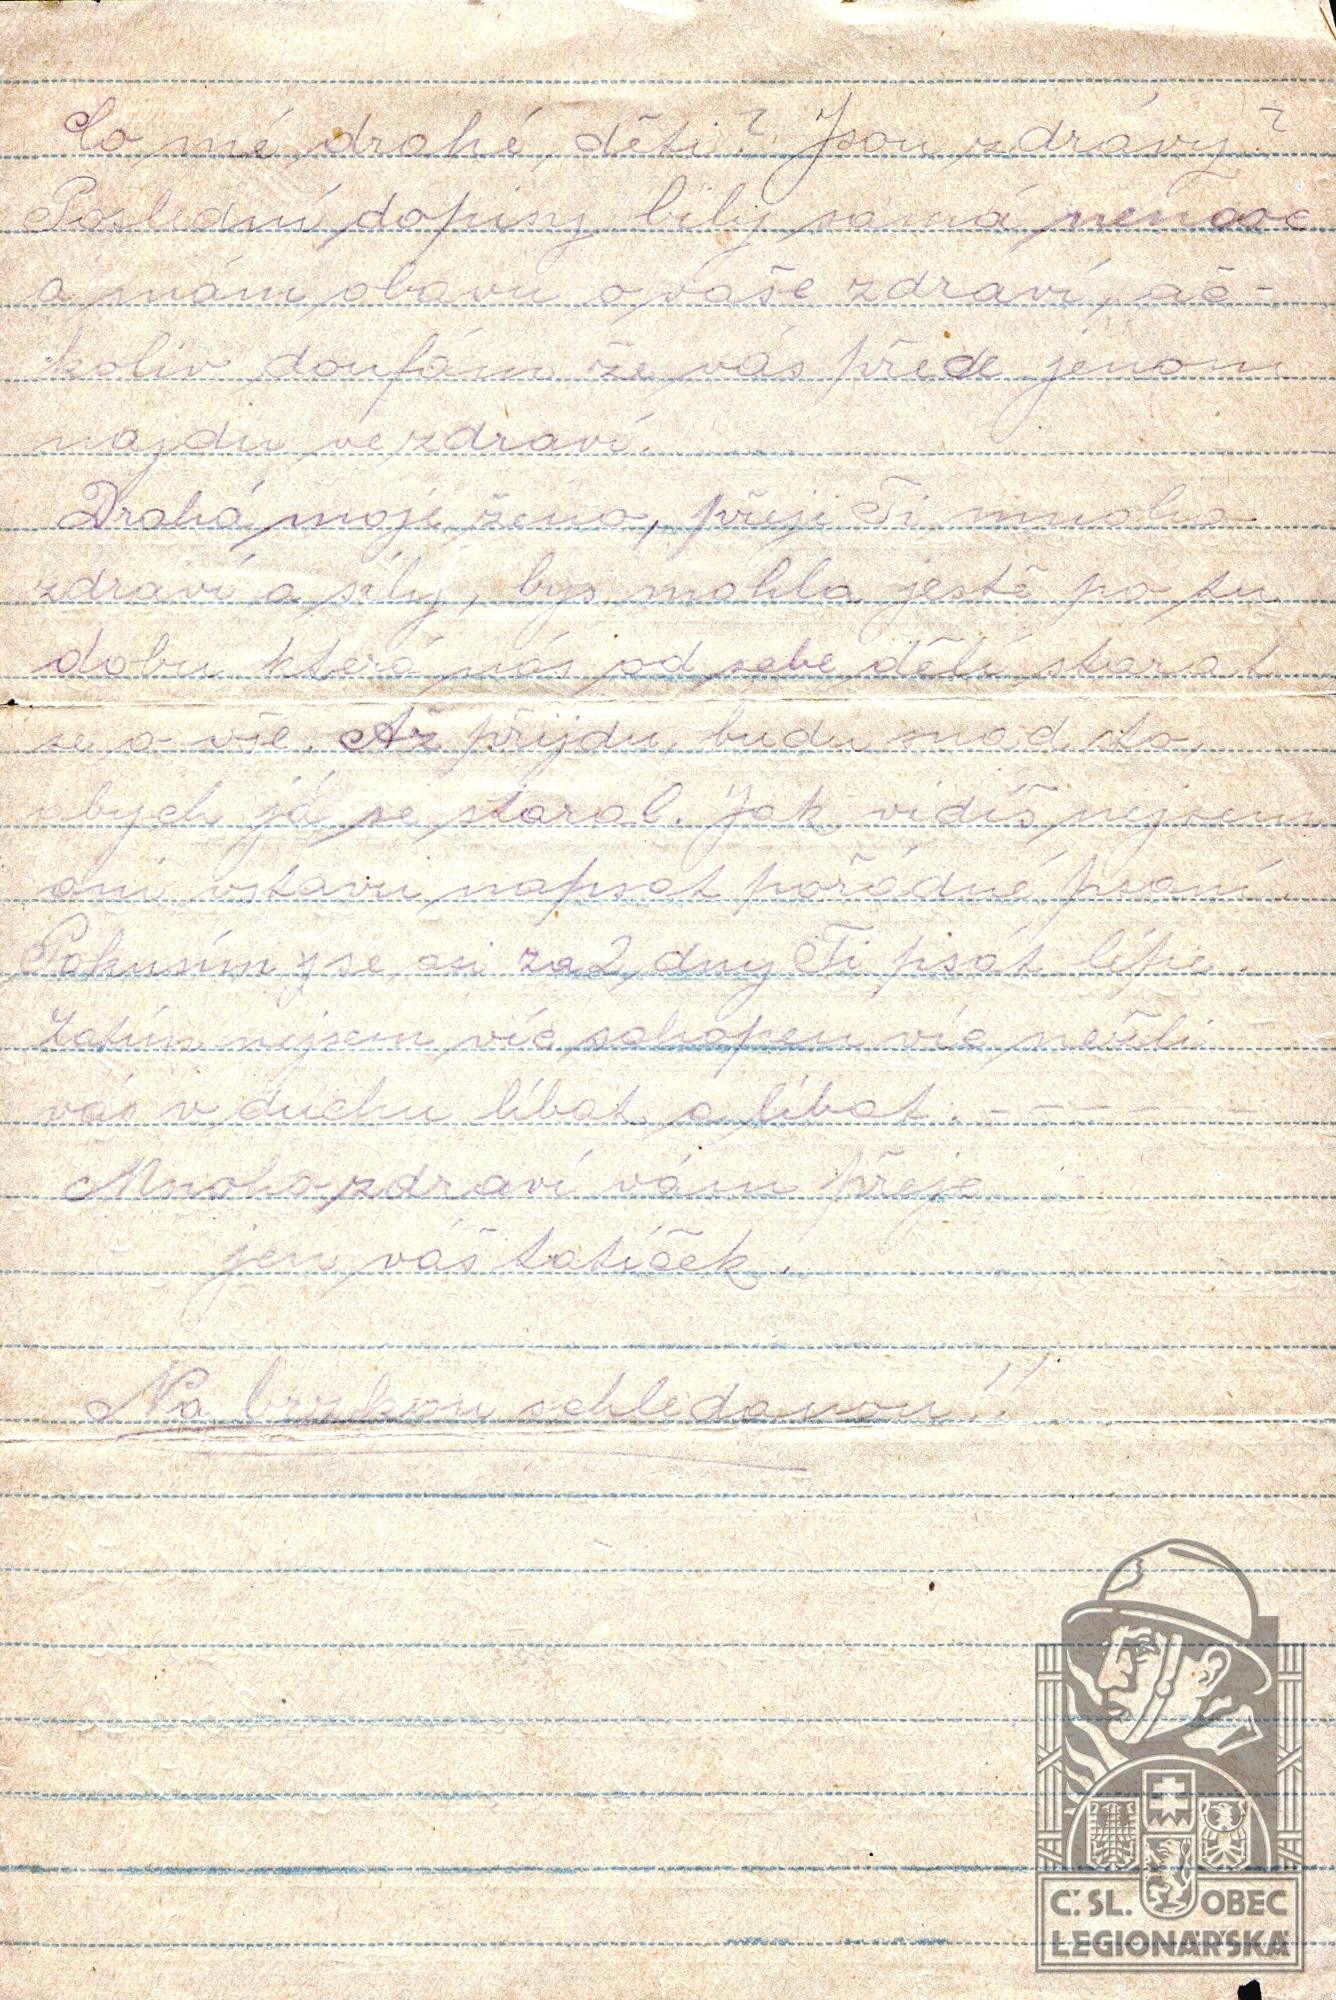 Co mé drahé děti? Jsou zdrávy?
Poslední dopisy byly samá nemoc
a mám obavu o vaše zdraví, ač-
koliv doufám že vás přede jenom
najdu ve zdraví.
Drahá moje ženo, přeji Ti mnoho
zdraví a síly, bys mohla jestě po tu
dobu která nás od sebe dělí starat
se o vše. Až přijdu budu snad to
abych já se staral. Jak vidíš nejsem
ani vstavu napsat pořádné psaní.
Pokusím se asi za 2 dny Ti psát lépe.
Zatím nejsem víc schopen víc nežli
vás v duchu líbat a líbat. - - - - - -
Mnoho zdraví vám přeje
jen váš tatíček.
Na brzkou schledanou!!
Č. SL. OBEC
LEGIONÁŘSKÁ